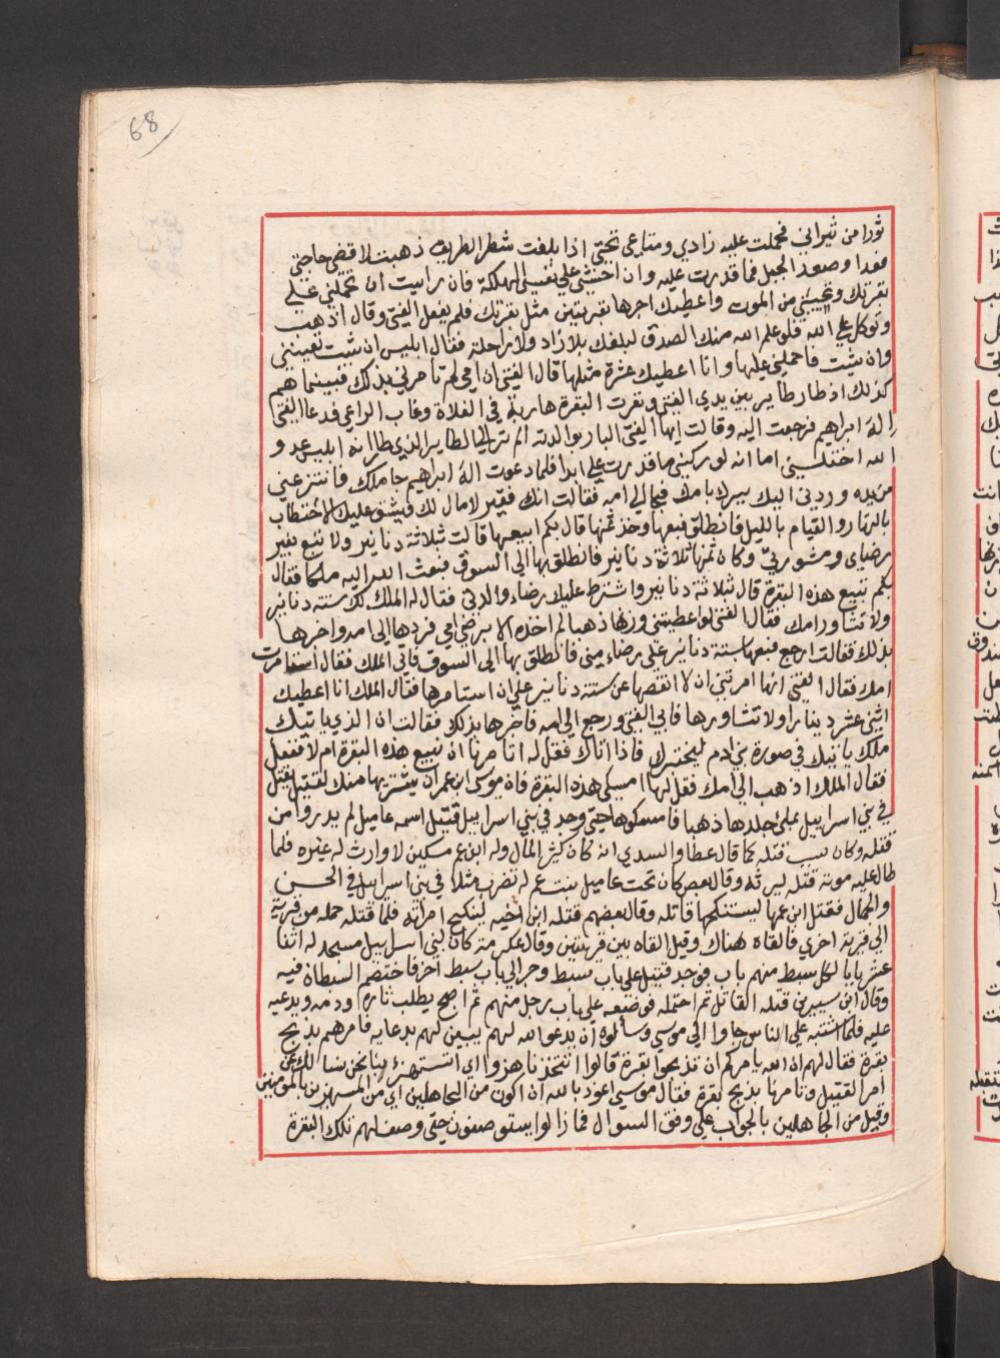 68
ثورا من ثيراني فحملت عليه زادي ومتاعي تحتي اذا بلغت شطر الطريق ذهبت لاقضي حاجتي
فعدا وصعد الجبل فما قدرت عليه واني اخشي علي نفسي الهلكة فان رايت ان تحملني علي
بقرتك وتنجيني من الموت واعطيك اجرها بقرتين مثل بقرتك فلم يفعل الفتي وقال اذهب
وتوكل علي الله فلو علم الله منك الصدق لبلغك بلا زاد ولا راحلة فقال ابليس ان شئت فبعنيها
وان شئت فاحملني عليها وانا اعطيك عشرة مثلها قال الفتي ان امي لم تامرني بذلك فبينما هم
كذلك اذ طار طاير بين يدي الفتي ونفرت البقرة هاربة في الفلاة وغاب الراعي فدعا الفتي
اله ابراهيم فرجعت اليه وقالت ايها الفتي البار بوالدته الم تر الي الطاير الذي طار انه ابليس عدو
الله اختلسني اما انه لو ركبني ما قدرت علي ابدا فلما دعوت اله ابراهيم جا ملك فانتزعني
من يده وردني اليك ببرك بامك فجا الي امه فقالت انك فقير لا مال لك فيشق عليك الاحتطاب
بالنهار والقيام بالليل فانطلق فبعها وخذ ثمنها قال بكم ابيعها قالت ثلاثة دنانير ولا تبع بغير
رضاي ومشورتي وكان ثمنها ثلاثة دنانير فانطلق بها الي السوق فبعث الله اليه ملكا فقال
بكم تبيع هذه البقرة قال ثبلاثة دنانير واشترط عليك رضاء والدتي فقال له الملك لك ستة دنانير
ولا تشاور امك فقال الفتي لو اعطيتني وزنها ذهبا لم اخذه الا برضي امي فردها الي امه واخبرها
بذلك فقالت ارجع فبعها بستة دنانير علي رضاء مني فانطلق بها الي السوق فاتي الملك فقال استامرت
امك فقال الفتي انها امرتني ان لا انقصها عن ستة دنانير علي ان استامرها فقال الملك انا اعطيك
اثني عشر دينارا ولا تشاورها فابي الفتي ورجع الي امه فاخبرها بذلك فقالت ان الذي ياتيك
ملك ياتيك في صورة بني ادم ليختبرك فاذا اتاك فقل له اتامرنا ان نبيع هذه البقرة ام لا ففعل
فقال الملك اذهب الي امك فقل لها امسكي هذه البقرة فان موسي ابن عمران يشتريها منك لقتيل يقتل
في بني اسراييل بملئ جلدها ذهبا فامسكوها حتي وجد في بني اسراييل قتيل اسمه عاميل لم يدروا من
قتله وكان سبب قتله كما قال عطا والسدي انه كان كثير المال وله ابن عم مسكين لا وارث له غيره فلما
طال عليه موته قتله ليرثه وقال بعضهم كان تحت عاميل بنت عم له تضرب مثلا في بني اسراييل في الحسن
والجمال فقتل ابن عمها ليستنكحها قاتله وقال بعضهم قتله ابن اخيه لينكح امراته فلما قتله حمله من قرية
الي قرية اخري فالقاه هناك وقيل القاه بين قريتين وقال عكرمة كان لبني اسراييل مسجد له اثنا
عشر بابا لكل سبط منهم باب فوجد قتيل علي باب سبط وجر الي باب سبط اخر فاختصم السبطان فيه
وقال ابن سيرين قتله القاتل ثم احتمله فوضعه علي باب رجل منهم ثم اصبح يطلب ثاره ودمه ويدعيه
عليه فلما اشتبه علي الناس جاوا الي موسي وسالوه ان يدعو الله لهم يبين لهم بدعايه فامرهم بذبح
بقرة فقال لهم ان الله يامركم ان تذبحوا بقرة قالوا اتتخذنا هزوا اي اتستهزئ بنا نحن نسالك عن
امر القتيل وتامرنا بذبح بقرة فقال موسي اعوذ بالله ان اكون من الجاهلين اي من المستهزين بالمومنين
وقيل من الجاهلين بالجواب علي وفق السوال فما زالوا يستوصفون حتي وصف لهم تلك البقرة